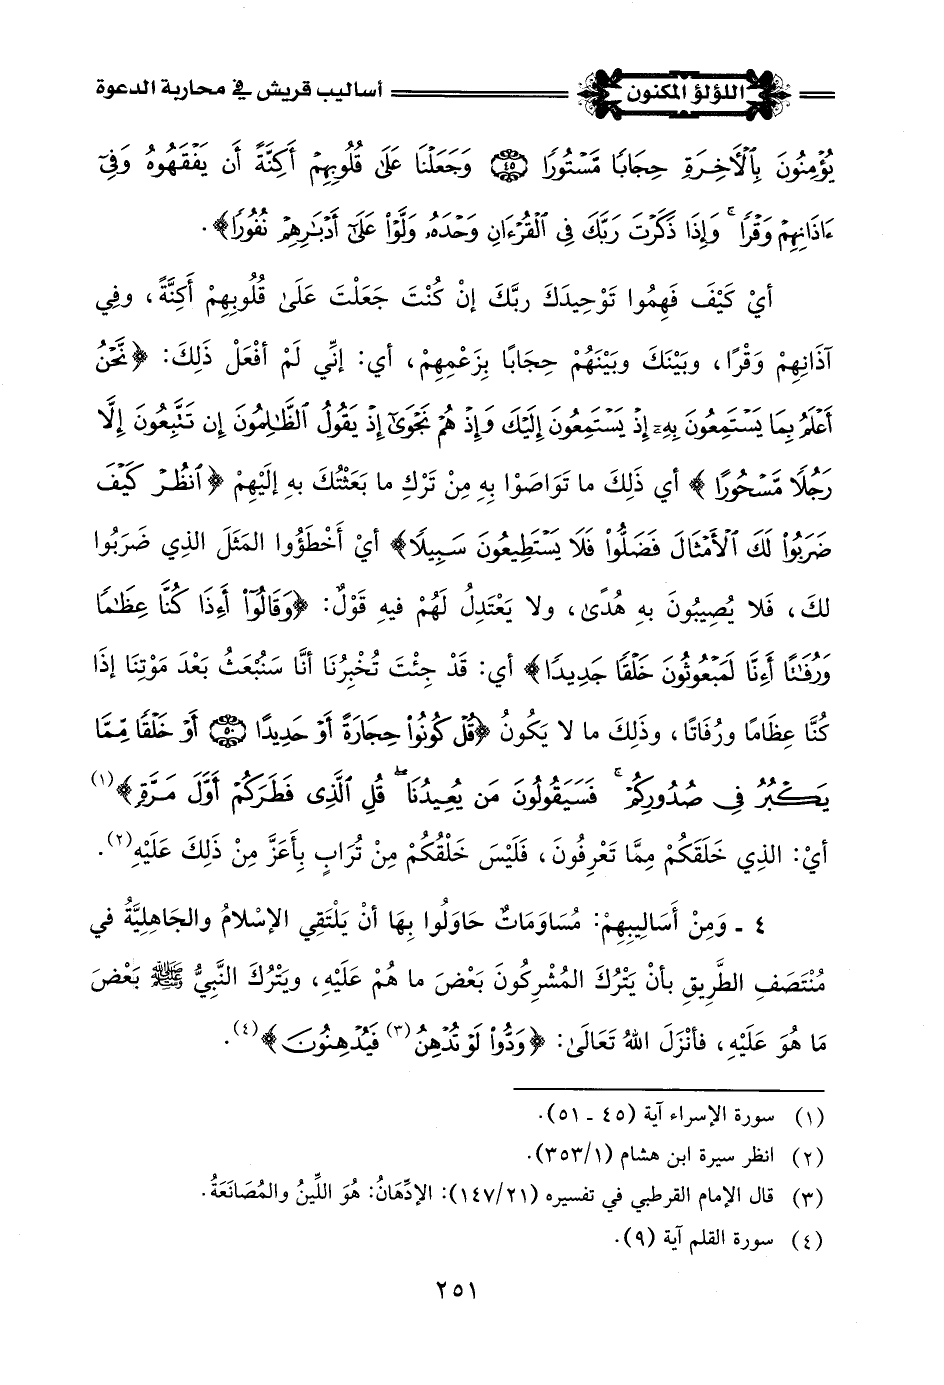 اللؤلؤ المكنون أساليب قريش في محاربة الدعوة
يُؤْمِنُونَ بِٱلْأَخِرَةِ حِجَابًا مَّسْتُورًا ۝٤٥ وَجَعَلْنَا عَلَىٰ قُلُوبِهِمْ أَكِنَّةً أَن يَفْقَهُوهُ وَفِىٓ
ءَاذَانِهِمْ وَقْرًا ۚ وَإِذَا ذَكَرْتَ رَبَّكَ فِى ٱلْقُرْءَانِ وَحْدَهُۥ وَلَّوْا۟ عَلَىٰٓ أَدْبَـٰرِهِمْ نُفُورًا﴾.
أيْ كَيْفَ فَهِمُوا تَوْحِيدَكَ ربَّكَ إنْ كُنْتَ جَعَلْتَ عَلَىٰ قُلُوبِهِمْ أَكِنَّةً، وفِي
آذَانِهِمْ وَقْرًا، وبَيْنَكَ وبَيْنَهُمْ حِجَابًا بِزَعْمِهِمْ، أي: إنِّي لَمْ أفْعَلْ ذَلِكَ: ﴿نَّحْنُ
أَعْلَمُ بِمَا يَسْتَمِعُونَ بِهِۦٓ إِذْ يَسْتَمِعُونَ إِلَيْكَ وَإِذْ هُمْ نَجْوَىٰٓ إِذْ يَقُولُ ٱلظَّـٰلِمُونَ إِن تَتَّبِعُونَ إِلَّا
رَجُلًا مَّسْحُورًا ﴾ أي ذَلِكَ ما تَوَاصَوْا بِهِ مِنْ تَرْكِ ما بَعَثْتُكَ بهِ إلَيْهِمْ ﴿ٱنظُرْ كَيْفَ
ضَرَبُوا۟ لَكَ ٱلْأَمْثَالَ فَضَلُّوا۟ فَلَا يَسْتَطِيعُونَ سَبِيلًا﴾ أيْ أَخْطَؤُوا المَثَلَ الذِي ضَرَبُوا
لكَ، فَلا يُصِيبُونَ بهِ هُدًى، ولا يَعْتَدِلُ لَهُمْ فيهِ قَوْلٌ: ﴿وَقَالُوٓا۟ أَءِذَا كُنَّا عِظَـٰمًا
وَرُفَـٰتًا أَءِنَّا لَمَبْعُوثُونَ خَلْقًا جَدِيدًا﴾ أي: قَدْ جِئْتَ تُخْبِرُنَا أنَّا سَنُبْعَثُ بَعْدَ مَوْتِنَا إذَا
كُنَّا عِظَامًا ورُفَاتًا، وذَلِكَ ما لا يَكُونُ ﴿قُلْ كُونُوا۟ حِجَارَةً أَوْ حَدِيدًا ۝٥٠ أَوْ خَلْقًا مِّمَّا
يَكْبُرُ فِى صُدُورِكُمْ ۚ فَسَيَقُولُونَ مَن يُعِيدُنَا ۖ قُلِ ٱلَّذِى فَطَرَكُمْ أَوَّلَ مَرَّةٍ﴾(١)
أيْ: الذِي خَلَقَكُمْ مِمَّا تَعْرِفُونَ، فَلَيْسَ خَلْقُكُمْ مِنْ تُرَابٍ بِأَعَزَّ مِنْ ذَلِكَ عَلَيْهِ(٢).
٤ ـ وَمِنْ أَسَالِيبِهِمْ: مُسَاوَمَاتٌ حَاوَلُوا بِهَا أنْ يَلْتَقِي الإسْلامُ والجَاهِلِيَّةُ في
مُنْتَصَفِ الطَّرِيقِ بأنْ يَتْرُكَ المُشْرِكُونَ بَعْضَ ما هُمْ عَلَيْهِ، ويَتْرُكَ النَّبِيُّ ﷺ بَعْضَ
مَا هُوَ عَلَيْهِ، فأنْزَلَ اللهُ تَعَالَىٰ: ﴿وَدُّوا۟ لَوْ تُدْهِنُ(٣) فَيُدْهِنُونَ﴾(٤).
(١) سورة الإسراء آية (٤٥ ـ ٥١).
(٢) انظر سيرة ابن هشام (٣٥٣/١).
(٣) قال الإمام القرطبي في تفسيره (١٤٧/٢١): الإدِّهَانُ: هُوَ اللِّينُ والمُصَانَعَةُ.
(٤) سورة القلم آية (٩).
٢٥١